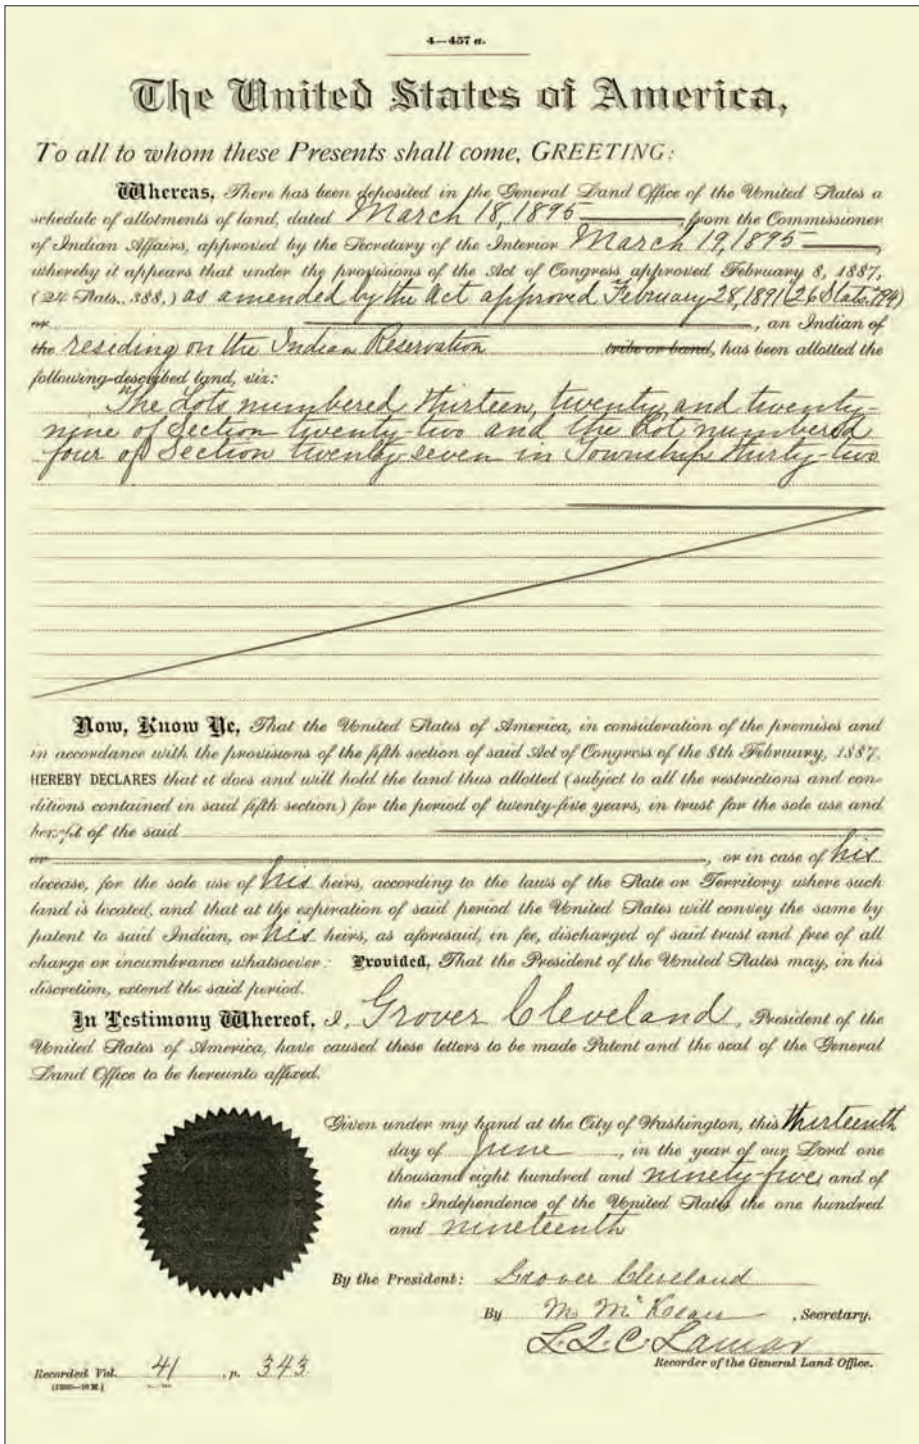 4—457 a.
The United States of America,
To all to whom these Presents shall come, GREETING:
Whereas, There has been deposited in the General Land Office of the United States a
schedule of allotments of land, dated March 18, 1895, from the Commissioner
of Indian Affairs, approved by the Secretary of the Interior March 19, 1895,
whereby it appears that under the provisions of the Act of Congress approved February 8, 1887,
(24 Stats., 388,) as amended by the Act approved February 28, 1891 (26 Stats. 794)
or , an Indian of
the residing on the Indian Reservation tribe or band, has been allotted the
following-described land, viz:
The Lots numbered thirteen, twenty and twenty-
nine of Section twenty-two and the Lot numbered
four of Section twenty seven in Township thirty-two
Now, Know Ye, That the United States of America, in consideration of the premises and
in accordance with the provisions of the fifth section of said Act of Congress of the 8th February, 1887,
HEREBY DECLARES that it does and will hold the land thus allotted (subject to all the restrictions and con-
ditions contained in said fifth section) for the period of twenty-five years, in trust for the sole use and
benefit of the said
or , or in case of his
decease, for the sole use of his heirs, according to the laws of the State or Territory where such
land is located, and that at the expiration of said period the United States will convey the same by
patent to said Indian, or his heirs, as aforesaid, in fee, discharged of said trust and free of all
charge or incumbrance whatsoever: Provided, That the President of the United States may, in his
discretion, extend the said period.
In Testimony Whereof, I, Grover Cleveland, President of the
United States of America, have caused these letters to be made Patent and the seal of the General
Land Office to be hereunto affixed.
Given under my hand at the City of Washington, this thirteenth
day of June, in the year of our Lord one
thousand eight hundred and ninety-five and of
the Independence of the United States the one hundred
and nineteenth
By the President: Grover Cleveland
By M. McKean, Secretary.
L.Q.C. Lamar
Recorder of the General Land Office.
Recorded Vol. 41, p. 343